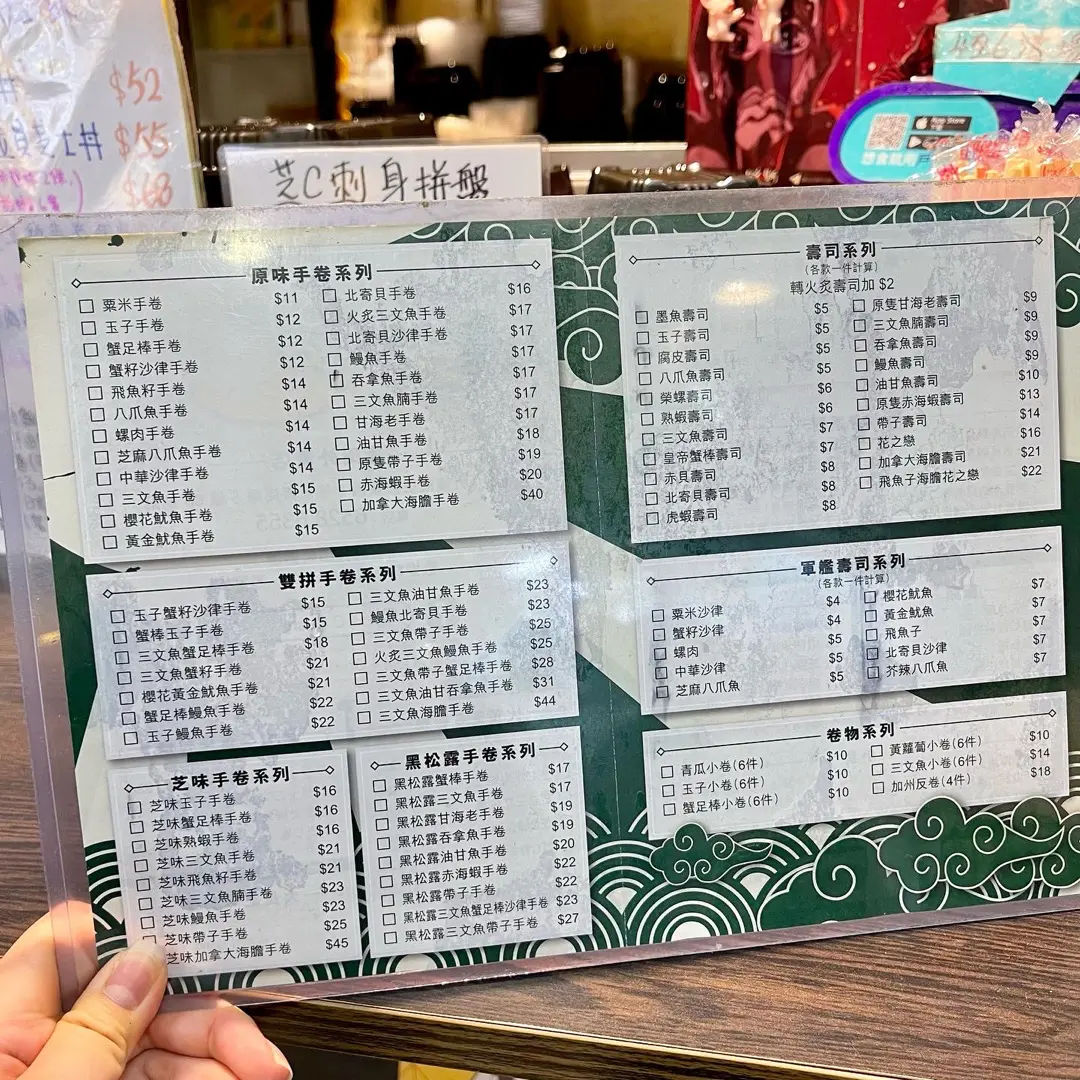 $52
$55
$68
芝C刺身拼盤
原味手卷系列
粟米手卷 $11
玉子手卷 $12
蟹足棒手卷 $12
蟹籽沙律手卷 $12
飛魚籽手卷 $14
八爪魚手卷 $14
螺肉手卷 $14
芝麻八爪魚手卷 $14
中華沙律手卷 $14
三文魚手卷 $15
櫻花魷魚手卷 $15
黃金魷魚手卷 $15
北寄貝手卷 $16
火炙三文魚手卷 $17
北寄貝沙律手卷 $17
鰻魚手卷 $17
吞拿魚手卷 $17
三文魚腩手卷 $17
甘海老手卷 $17
油甘魚手卷 $18
原隻帶子手卷 $19
赤海蝦手卷 $20
加拿大海膽手卷 $40
雙拼手卷系列
玉子蟹籽沙律手卷 $15
蟹棒玉子手卷 $15
三文魚蟹足棒手卷 $18
三文魚蟹籽手卷 $21
櫻花黃金魷魚手卷 $21
蟹足棒鰻魚手卷 $22
玉子鰻魚手卷 $22
三文魚油甘魚手卷 $23
鰻魚北寄貝手卷 $23
三文魚帶子手卷 $25
火炙三文魚鰻魚手卷 $25
三文魚帶子蟹足棒手卷 $28
三文魚油甘吞拿魚手卷 $31
三文魚海膽手卷 $44
芝味手卷系列
芝味玉子手卷 $16
芝味蟹足棒手卷 $16
芝味熟蝦手卷 $16
芝味三文魚手卷 $21
芝味飛魚籽手卷 $21
芝味三文魚腩手卷 $23
芝味鰻魚手卷 $23
芝味帶子手卷 $25
芝味加拿大海膽手卷 $45
黑松露手卷系列
黑松露蟹棒手卷 $17
黑松露三文魚手卷 $17
黑松露甘海老手卷 $19
黑松露吞拿魚手卷 $19
黑松露油甘魚手卷 $20
黑松露赤海蝦手卷 $22
黑松露帶子手卷 $22
黑松露三文魚蟹足棒沙律手卷 $23
黑松露三文魚帶子手卷 $27
壽司系列
(各款一件計算)
轉火炙壽司加 $2
墨魚壽司 $5
玉子壽司 $5
腐皮壽司 $5
八爪魚壽司 $5
榮螺壽司 $6
熟蝦壽司 $6
三文魚壽司 $7
皇帝蟹棒壽司 $7
赤貝壽司 $8
北寄貝壽司 $8
虎蝦壽司 $8
原隻甘海老壽司 $9
三文魚腩壽司 $9
吞拿魚壽司 $9
鰻魚壽司 $9
油甘魚壽司 $10
原隻赤海蝦壽司 $13
帶子壽司 $14
花之戀 $16
加拿大海膽壽司 $21
飛魚子海膽花之戀 $22
軍艦壽司系列
(各款一件計算)
粟米沙律 $4
蟹籽沙律 $4
螺肉 $5
中華沙律 $5
芝麻八爪魚 $5
櫻花魷魚 $7
黃金魷魚 $7
飛魚子 $7
北寄貝沙律 $7
芥辣八爪魚 $7
卷物系列
青瓜小卷(6件) $10
玉子小卷(6件) $10
蟹足棒小卷(6件) $10
黃蘿蔔小卷(6件) $10
三文魚小卷(6件) $14
加州反卷(4件) $18